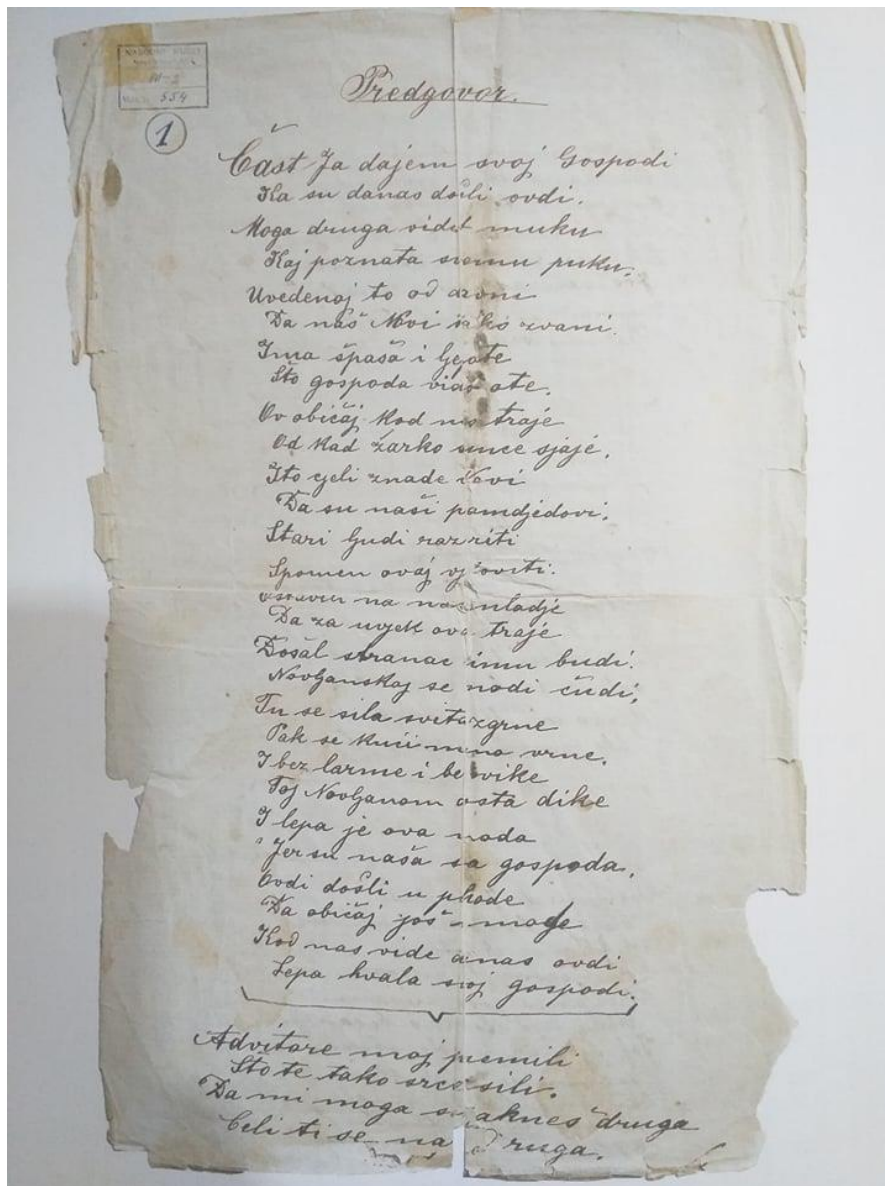 NARODNI MUZEJ
IV-2
554
1
Predgovor.
Čast Ja dajem svoj Gospodi
Ka su danas došli ovdi.
Moga druga vidit muku
Kaj poznata svemu puku.
Uvedenoj to od davni
Da naš Novi zvani.
Ima špaša i ljepote
Što gospoda vidit ote.
Ov običaj kod nas traje
Od kad žarko sunce sjaje.
Što cjeli znade Novi
Da su naši pamdjedovi.
Stari ljudi razviti
Spomen ovaj
ostavili na najmladje
Da za uvjek ova traje
Došal stranac imu budi.
Novljanskoj se nodi čudi,
Tu se sila svita zgrne
Pak se kući mirno vrne.
I bez larme i bez vike
Toj Novljanom osta dike
I lepa je ova noda
Jer su naša sa gospoda.
Ovdi došli u phode
Da običaj još mogle
Kod nas vide danas ovdi
Lepa hvala svoj gospodi.
Advitore moj premili
Što te tako srce sili.
Da mi moga druga
Celi ti se na druga.